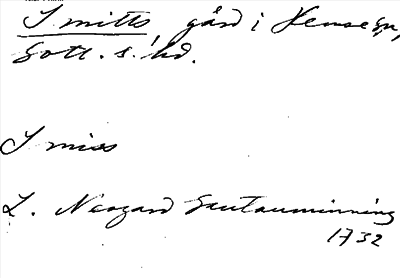 Smitts, gård i Hemse sn,
Gotl. s. hd.
Smiss
L. Neogard Gautauminning
1732